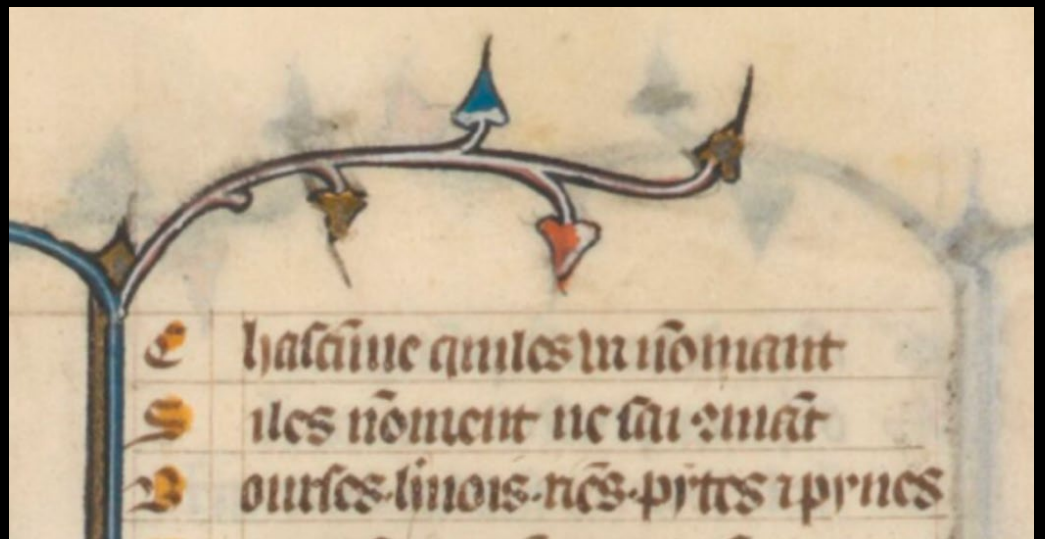 C hascūne quiles va nōmant
S iles nōment ne sai ꝯmāt
B ourses·h̄nois·riēs·pyttes ⁊pynes